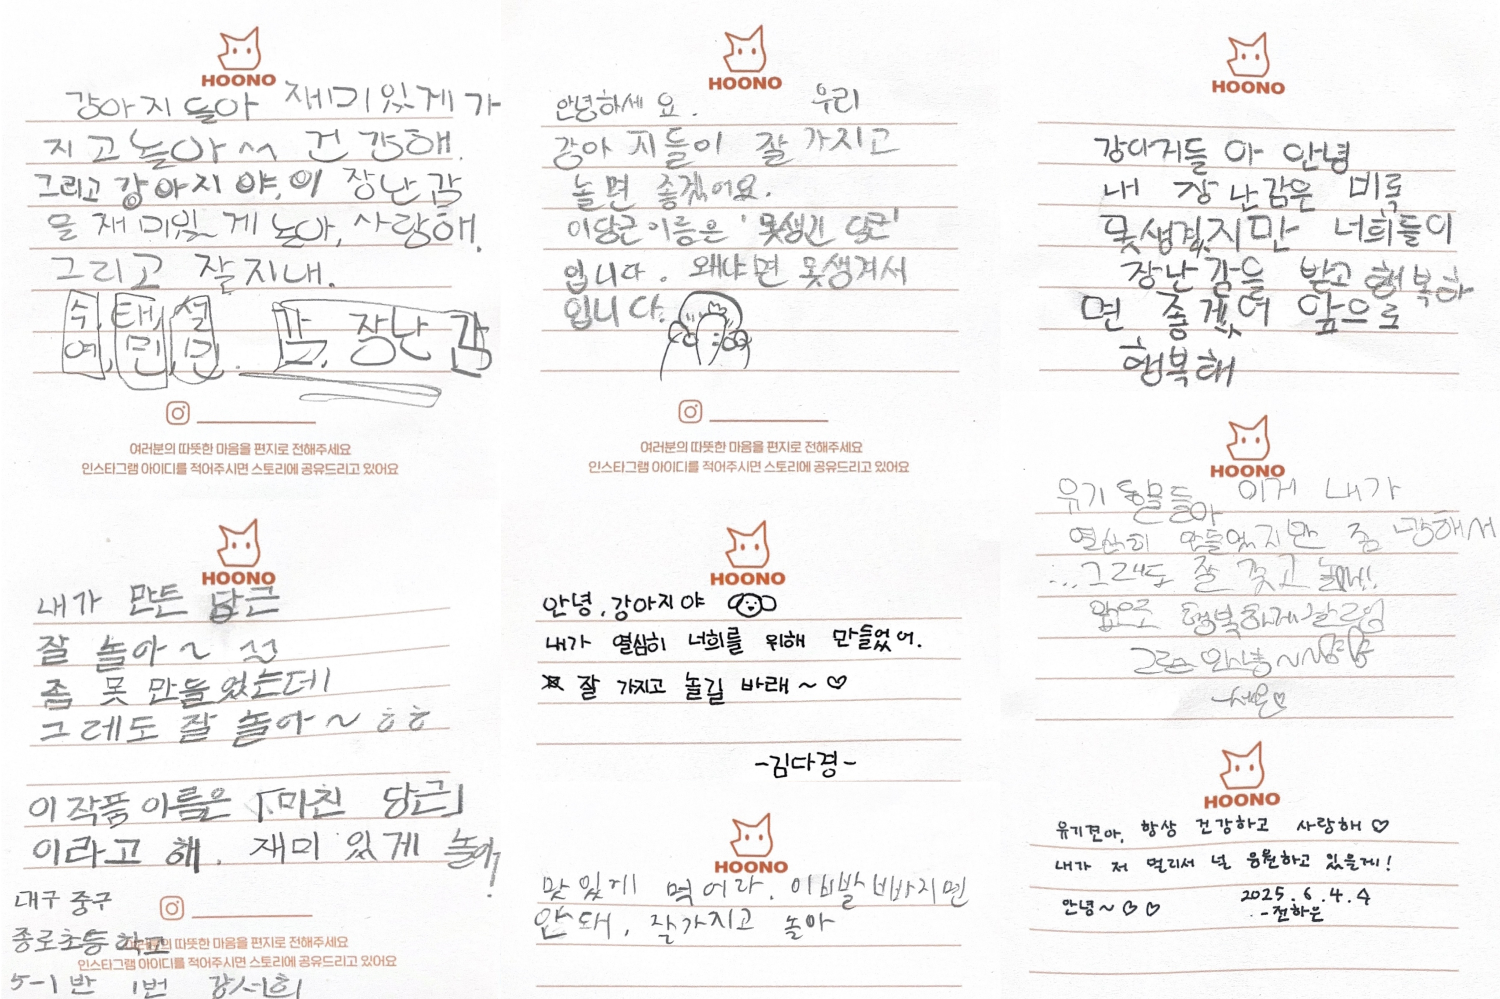 HOONO
강아지들아 재미있게 가
지고 놀아~ 건강해.
그리고 강아지야, 이 장난감
을 재미있게 놀아, 사랑해.
그리고 잘지내.
수, 태, 설
연, 민, 민. 끝, 장난감
여러분의 따뜻한 마음을 편지로 전해주세요
인스타그램 아이디를 적어주시면 스토리에 공유드리고 있어요
HOONO
내가 만든 당근
잘 놀아~
좀 못 만들었는데
그레도 잘 놀아~ ㅎㅎ
이 작품 이름은 「미친 당근」
이라고 해. 재미 있게 놀아!
대구 중구
종로초등학교
여러분의 따뜻한 마음을 편지로 전해주세요
인스타그램 아이디를 적어주시면 스토리에 공유드리고 있어요
5-1반 1번 강서희
HOONO
안녕하세요. 우리
강아지들이 잘 가지고
놀면 좋겠어요.
이당근이름은 '못생긴 당근'
입니다. 왜냐면 못생겨서
입니다.
여러분의 따뜻한 마음을 편지로 전해주세요
인스타그램 아이디를 적어주시면 스토리에 공유드리고 있어요
HOONO
안녕, 강아지야
내가 열심히 너희를 위해 만들었어.
잘 가지고 놀길 바래~♡
-김다경-
HOONO
맛있게 먹어라. 이빨
안돼, 잘가지고 놀아
HOONO
강아지들아 안녕
내 장난감은 비록
못생겼지만 너희들이
장난감을 받고 행복하
면 좋겠어 앞으로
행복해
HOONO
유기동물들아 이게 내가
열심히 만들었지만 좀 망해서
...그래도 잘 갖고 놀아!
앞으로 행복하게
그럼 안녕~
HOONO
유기견아, 항상 건강하고 사랑해♡
내가 저 멀리서 널 응원하고 있을게!
안녕~♡♡ 2025.6.4.수
-전하은